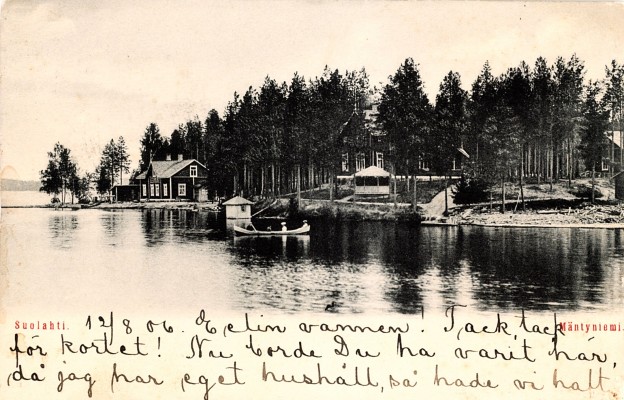 Suolahti. Mäntyniemi.
12/8 06. Elin vännen! Tack, tack
för kortet! Nu borde Du ha varit här,
då jag har eget hushåll, så hade vi haft